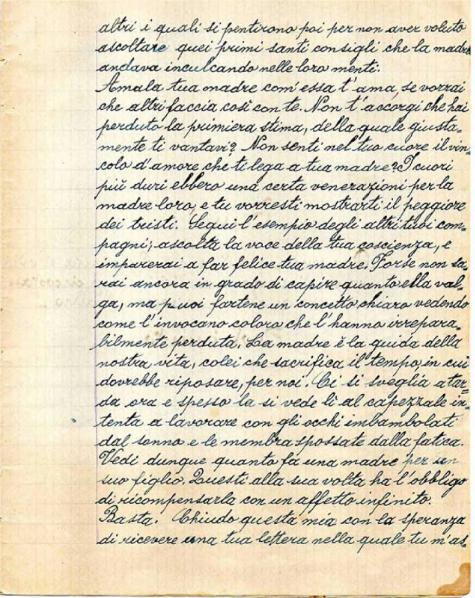 altri i quali si pentirono poi per non aver voluto
ascoltare quei primi santi consigli che la madre
andava inculcando nelle loro menti.
Amala tua madre com'essa t'ama, se vorrai
che altri faccia così con te. Non t'accorgi che hai
perduto la primiera stima, della quale giusta-
mente ti vantavi? Non senti nel tuo cuore il vin-
colo d'amore che ti lega a tua madre? I cuori
più duri ebbero una certa venerazioni per la
madre loro, e tu vorresti mostrarti il peggiore
dei tristi. Segui l'esempio degli altri tuoi com-
pagni, ascolta la voce della tua coscienza, e
imparerai a far felice tua madre. Forse non sa-
rai ancora in grado di capire quanto ella val-
ga, ma puoi fartene un concetto chiaro vedendo
come l'invocano coloro che l'hanno irrepara-
bilmente perduta. La madre è la guida della
nostra vita, colei che sacrifica il tempo, in cui
dovrebbe riposare, per noi. Ci si sveglia a tar-
da ora e spesso la si vede lì al capezzale in-
tenta a lavorare con gli occhi imbambolati
dal sonno e le membra spossate dalla fatica.
Vedi dunque quanto fa una madre per un
suo figlio. Questi alla sua volta ha l'obbligo
di ricompensarla con un affetto infinito.
Basta. Chiudo questa mia con la speranza
di ricevere una tua lettera nella quale tu m'as-